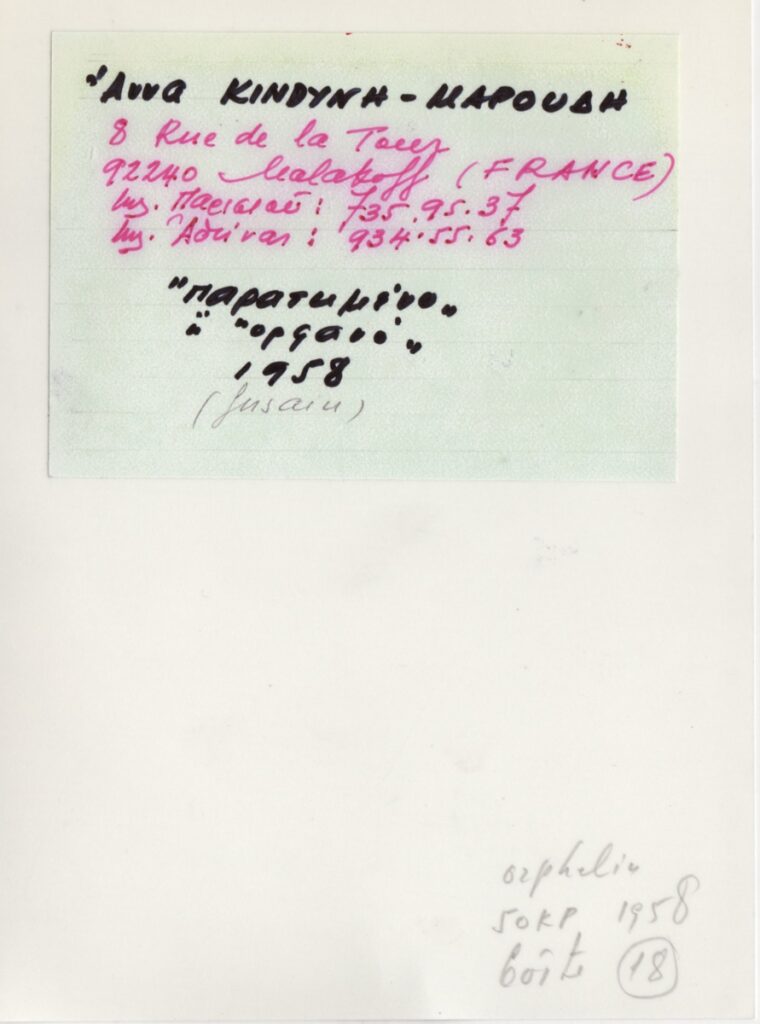 Ἄννα ΚΙΝΔΥΝΗ - ΜΑΡΟΥΔΗ
8 Rue de la Tour
92240 Malakoff (FRANCE)
τηλ. Παρισιοῦ : 735.95.37
τηλ. Ἀθήνας : 934.55.63
"παρατημένο„
ἤ "ορφανό„
1958
orphelin
50KP 1958
boîte 18